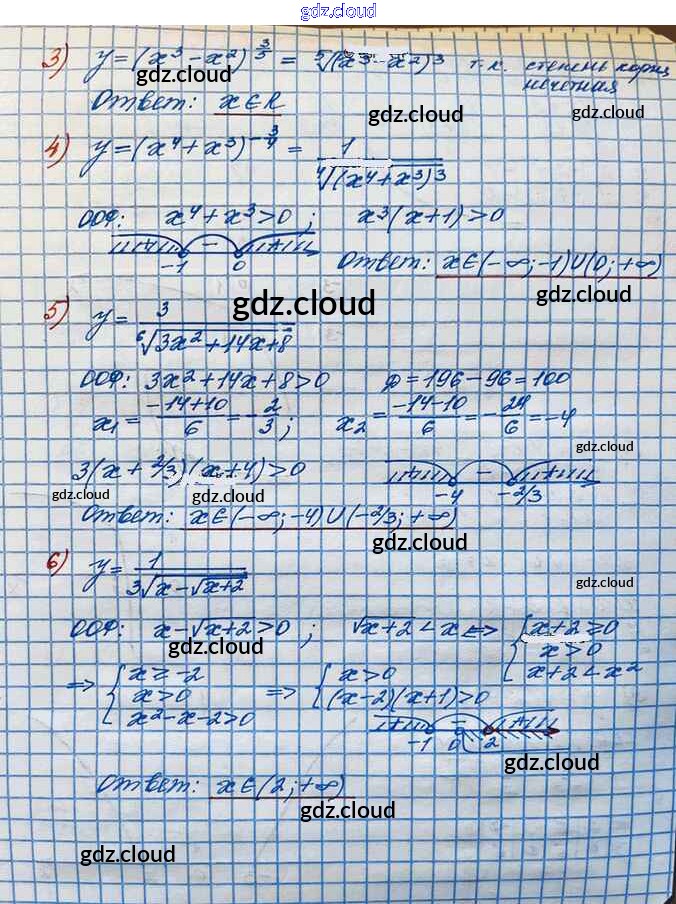 gdz.cloud
3) y=(x³-x²)^(3/5) = ⁵√(x³-x²)³ т.к. степень корня нечётная
Ответ: x∈R
gdz.cloud gdz.cloud gdz.cloud
4) y=(x⁴+x³)^(-3/4) = 1/⁴√(x⁴+x³)³
ООФ: x⁴+x³>0; x³(x+1)>0
-1 0
Ответ: x∈(-∞;-1)∪(0;+∞)
gdz.cloud gdz.cloud
5) y= 3/⁶√(3x²+14x+8)
ООФ: 3x²+14x+8>0 D=196-96=100
x₁= (-14+10)/6 = -2/3; x₂= (-14-10)/6 = -24/6 = -4
gdz.cloud
3(x+2/3)(x+4)>0
-4 -2/3
gdz.cloud gdz.cloud gdz.cloud
Ответ: x∈(-∞;-4)∪(-2/3;+∞)
gdz.cloud
6) y= 1/(3√(x-√(x+2)))
gdz.cloud
ООФ: x-√(x+2)>0; √(x+2)<x ⇔ { x+2≥0
x>0
x+2<x²
gdz.cloud
⇒ { x≥-2
x>0
x²-x-2>0
⇒ { x>0
(x-2)(x+1)>0
-1 0 2
gdz.cloud
Ответ: x∈(2;+∞)
gdz.cloud
gdz.cloud